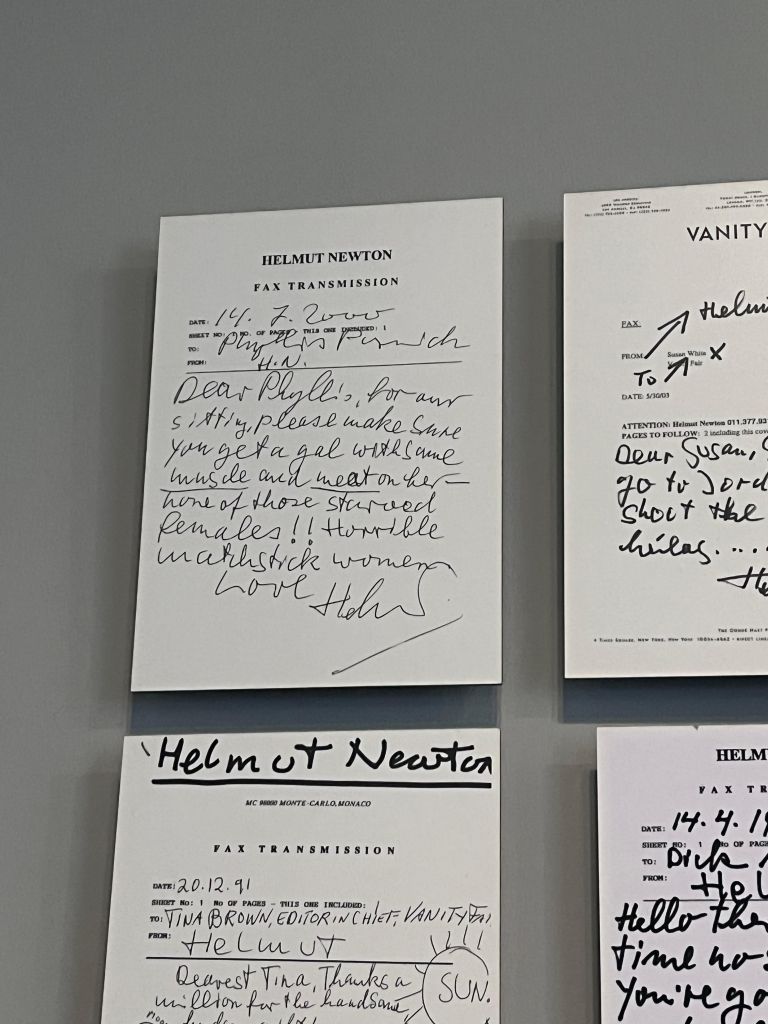 HELMUT NEWTON
FAX TRANSMISSION
DATE: 14. 7. 2000
SHEET NO: 1 NO. OF PAGES - THIS ONE INCLUDED: 1
TO: Phyllis
FROM: H.N.
Dear Phyllis, for our
sitting, please make sure
you get a gal with some
muscle and meat on her -
none of those starved
females!! Horrible
matchstick women
Love Helmut
VANITY
FAX Helmu
FROM Susan White X
To Fair
DATE: 5/30/03
ATTENTION: Helmut Newton 011.377.93
PAGES TO FOLLOW: 2 including this cov
Dear Susan, S
go to Jord
shoot the
4 TIMES SQUARE, NEW YORK, NEW YORK
Helmut Newton
MC 98000 MONTE-CARLO, MONACO
FAX TRANSMISSION
DATE: 20.12.91
SHEET NO: 1 No OF PAGES - THIS ONE INCLUDED:
TO: TINA BROWN, EDITOR IN CHIEF, VANITY FAI
FROM: Helmut
Dearest Tina, Thanks a
SUN.
million for the handsome
HELMU
FAX TR
DATE: 14.4.19
SHEET NO: 1 No OF PAGE
TO: Dick
FROM: Hel
Hello the
time no s
you're go